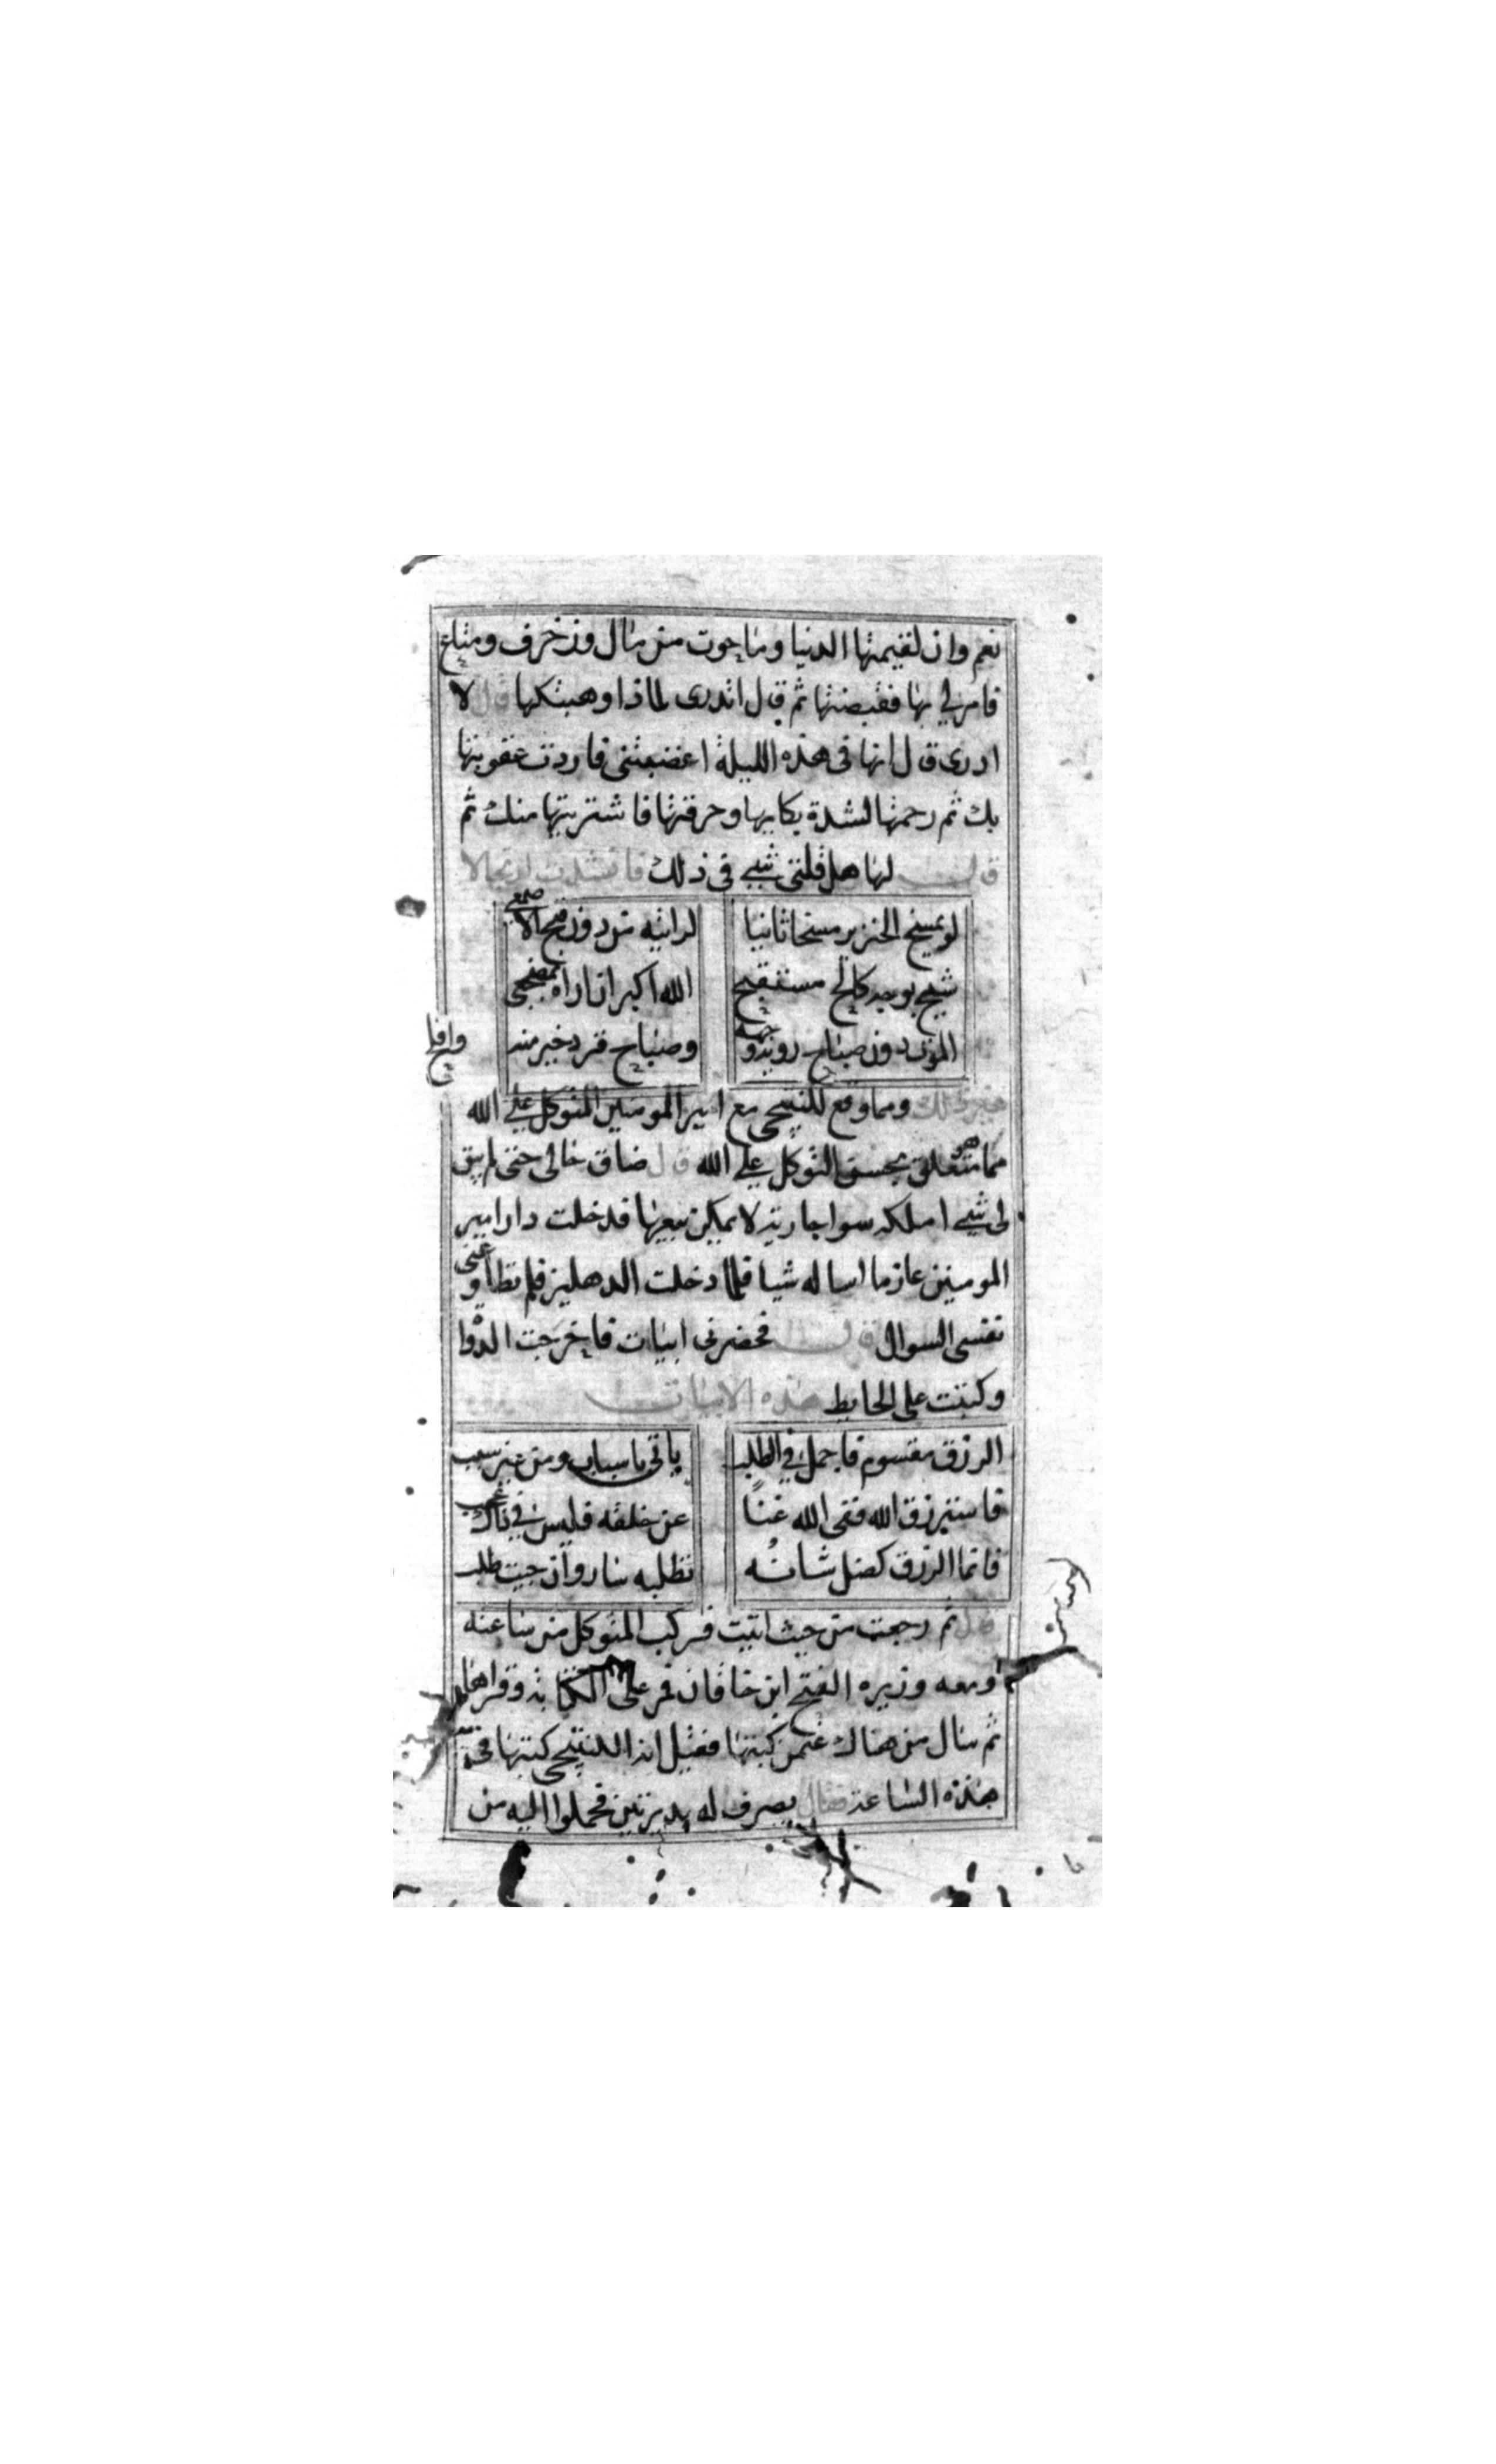 نعم وان لقيمتها الدنيا وما حوت من مال وزخرف ومتاع
فامر لي بها فقبضتها ثم قال اتدرى لماذا وهبتكها قال لا
ادرى قال انها فى هذه الليلة اغضبتنى فاردت عقوبتها
بك ثم رحمتها لشدة بكايها وحرقتها فاشتريتها منك ثم
قالـــت لها هل قلتى شيى فى ذلك فانشدت ارتجالا
لو يمسخ الخنزير مسخا ثانيا لرايته من دون قبح الاصمعي
شيخ بوجه كالح مستقبح الله اكبر ان اراه بمضجعى
الموت دون صباح روية وجهه وصباح قرد خير منه
وافلح
غير ذلك ومما وقع للنتيجى مع امير المومنين المتوكل على الله
مما هو متعلق بحسن التوكل على الله قال ضاق حالى حتى لم يبق
لى شيى املكه سوا جارية لا يمكن بيعها فدخلت دار امير
المومنين عازما اساله شيا فلما دخلت الدهليز فلم تطاوعنى
نفسى السوال قالـــ فحضرنى ابيات فاخرجت الدوا
وكتبت على الحايط هذه الابيات
الرزق مقسوم فاجمل في الطلب ياتى باسباب ومن غير سبب
فاسترزق الله ففى الله غنا عن خلقه فليس في ذاك عجب
فانما الرزق كضل شانه تطلبه سار وان جيت طلب
قال ثم رجعت من حيث اتيت فركب المتوكل من ساعته
ومعه وزيره الفتح ابن خاقان فمر على الكتابة وقراها
ثم سال من هناك عمن كتبها فقيل له النتيجى كتبها فى
هذه الساعة فقال يصرف له بدرتين فحملوا اليه من